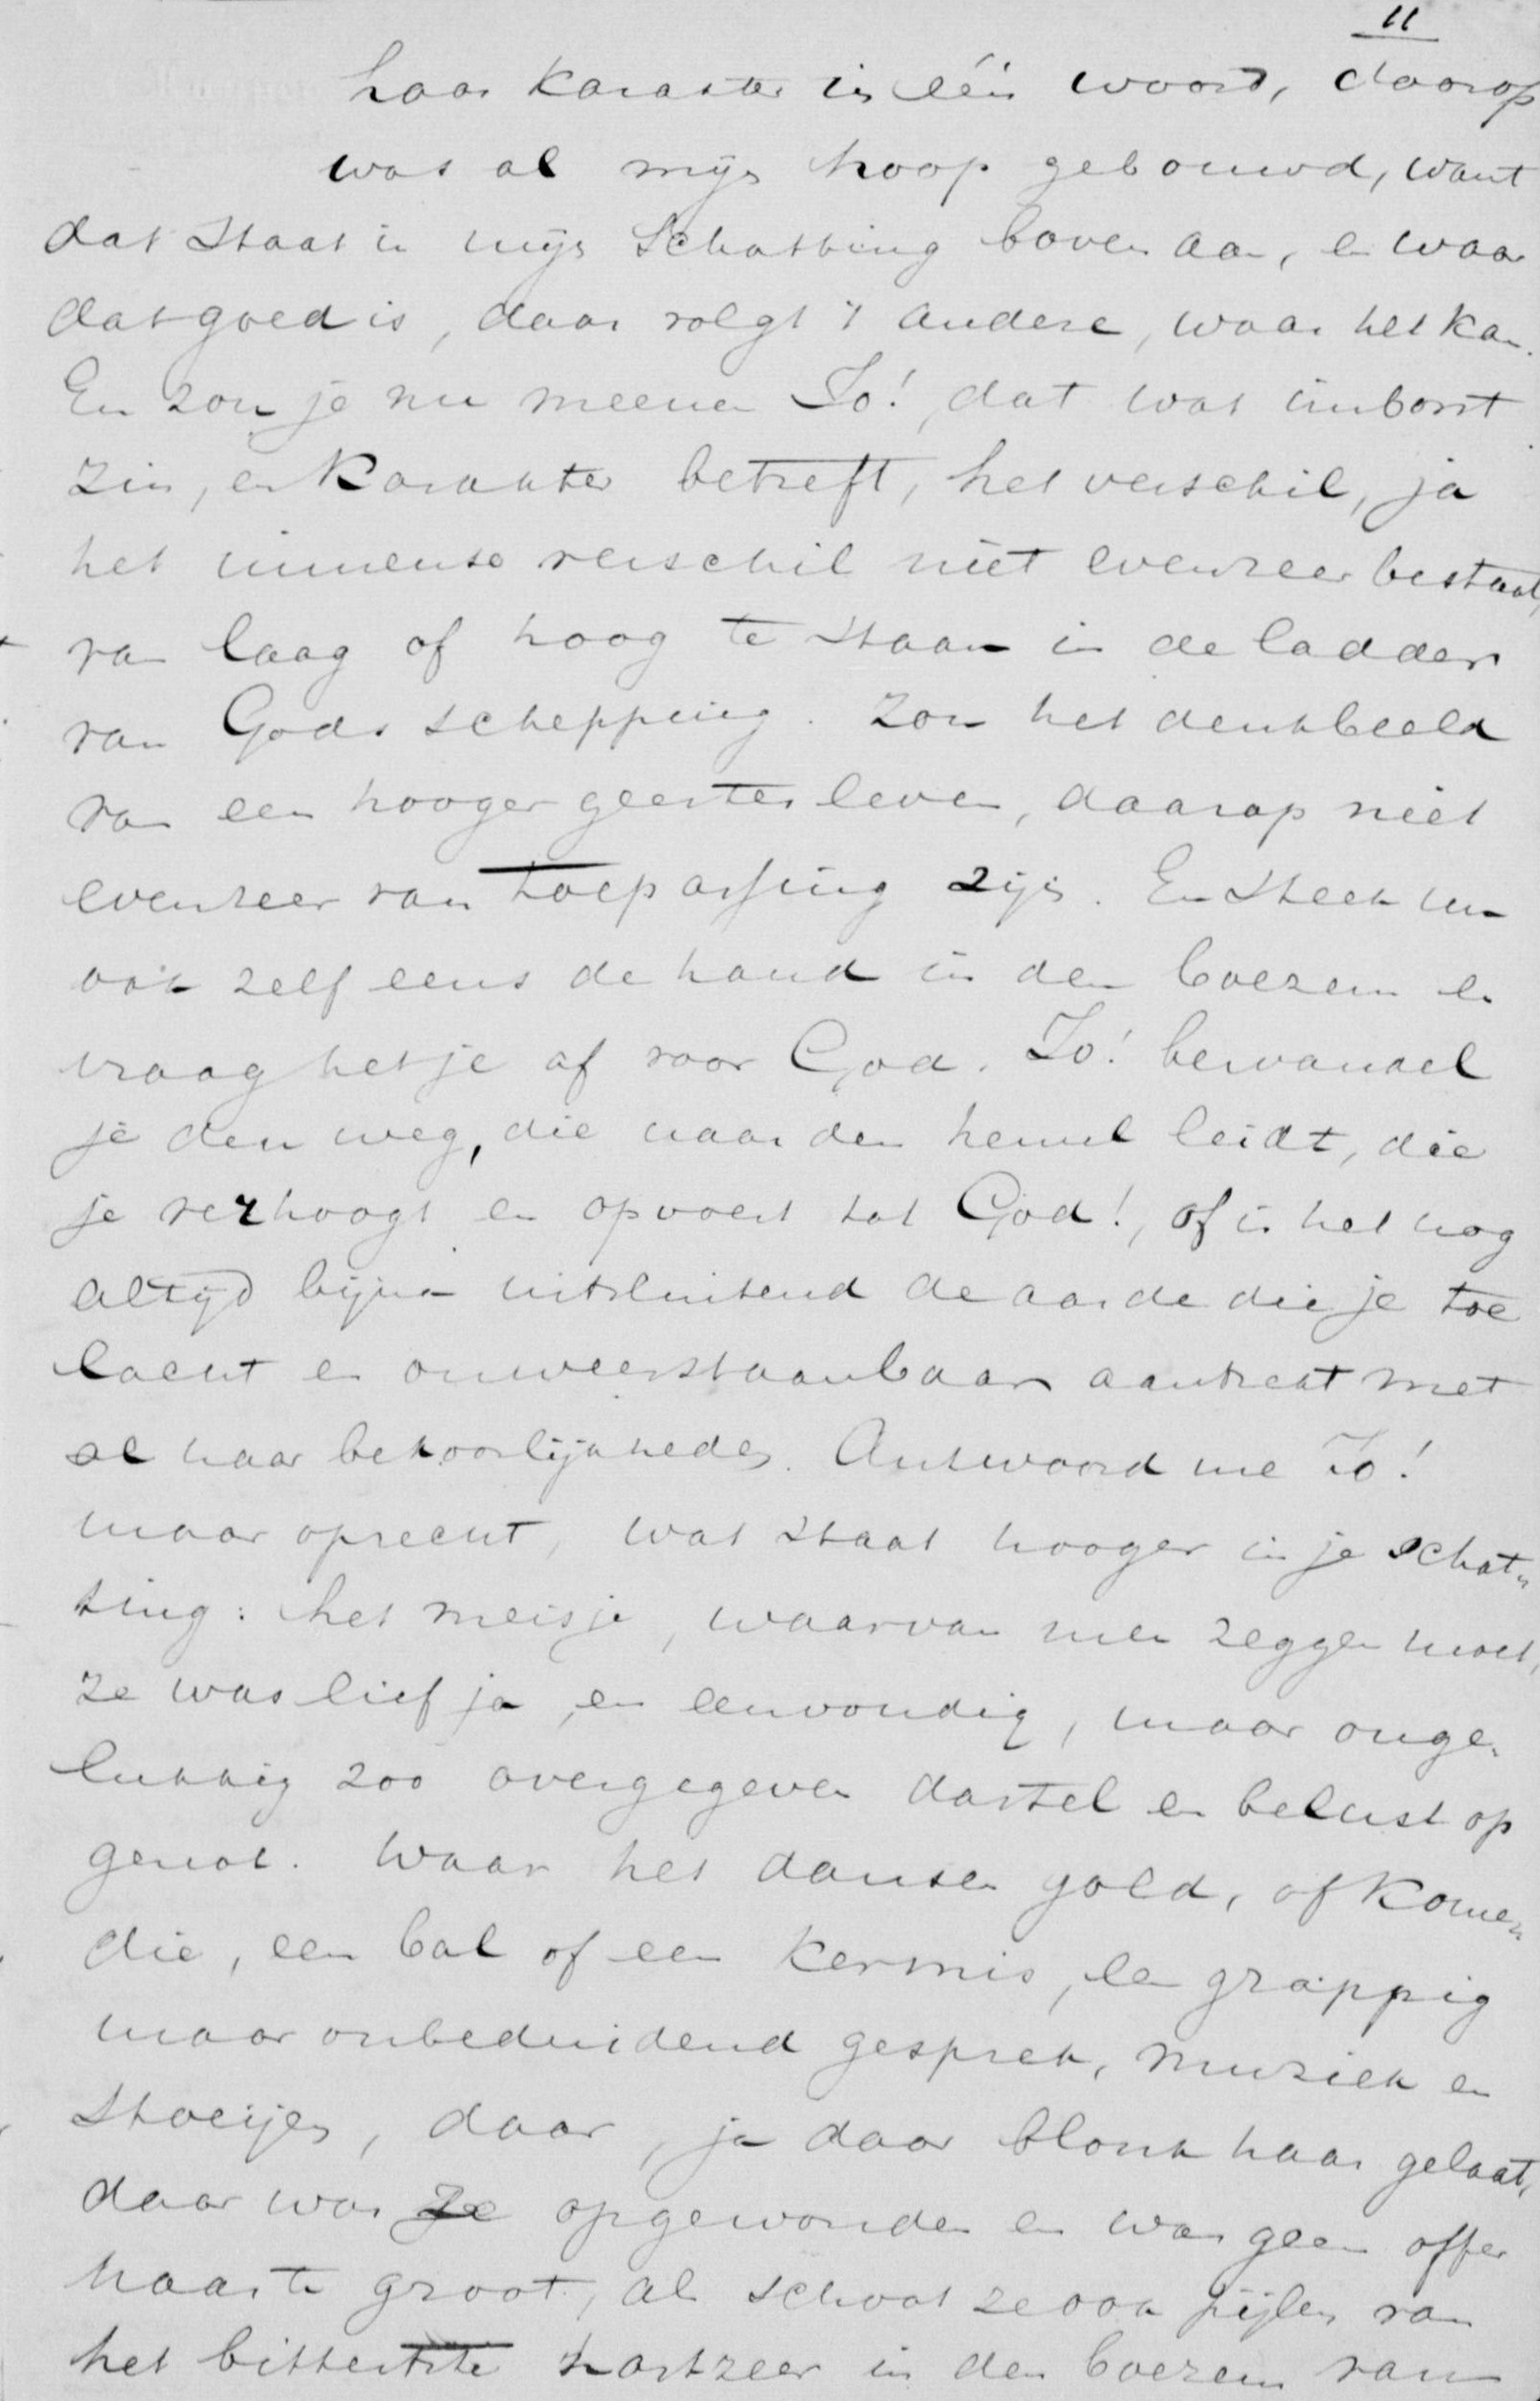 11
haar karakter in één woord, daarop
was al mijn hoop gebouwd, want
dat staat in mijn schatting boven aan, en waar
dat goed is, daar volgt 't andere, waar het kan.
En zou je nu meenen Jo!, dat wat inborst
zin, en karakter betreft, het verschil, ja
het immense verschil niet evenzeer bestaat,
van laag of hoog te staan in de ladder
van Gods schepping. Zou het denkbeeld
van een hooger geesten leven, daarop niet
evenzeer van toepassing zijn. En steek nu
ook zelf eens de hand in den boezem en
vraag het je af voor God. Jo! bewandel
je den weg, die naar den hemel leidt, die
je verhoogt en opvoert tot God!, of is het nog
altijd bijna uitsluitend de aarde die je toe
lacht en onweerstaanbaar aantrekt met
al haar bekoorlijkheden. Antwoord me Jo!
maar oprecht, wat staat hooger in je schat„
ting: het meisje, waarvan men zeggen moet,
ze was lief ja, en eenvoudig, maar onge„
lukkig zoo overgegeven dartel en belust op
genot. Waar het dansen gold, of kome„
die, een bal of een kermis, een grappig
maar onbeduidend gesprek, muziek en
stoeijen, daar, ja daar blonk haar gelaat,
daar was ze opgewonden en was geen offer
haar te groot, al schoot ze ook pijlen van
het bitterste hartzeer in den boezem van